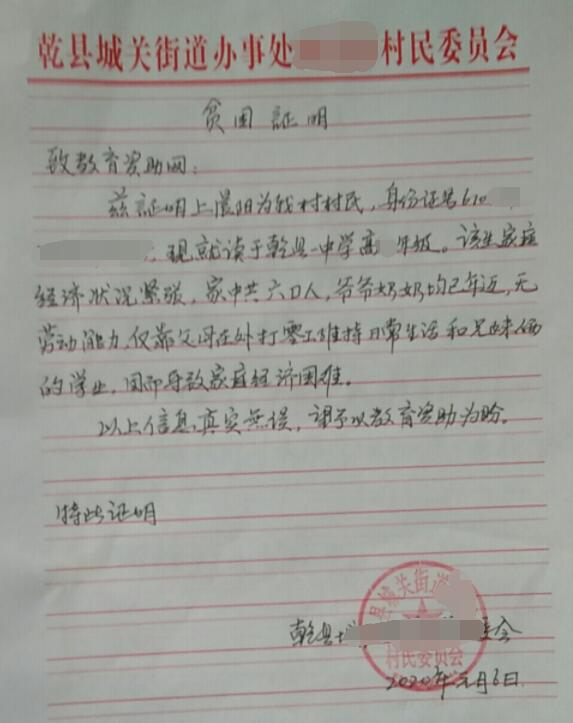 乾县城关街道办事处 村民委员会
贫困証明
致教育资助网：
兹証明上晨阳为我村村民，身份证号610
，现就读于乾县一中学高 年级。该生家庭
经济状况紧张，家中共六口人，爷爷奶奶均已年迈，无
劳动能力，仅靠父母在外打零工维持日常生活和兄妹俩
的学业，因而导致家庭经济困难。
以上信息真实無误，请予以教育资助为盼。
特此证明
乾县 会
县城关街道
村民委员会
2020年元月6日